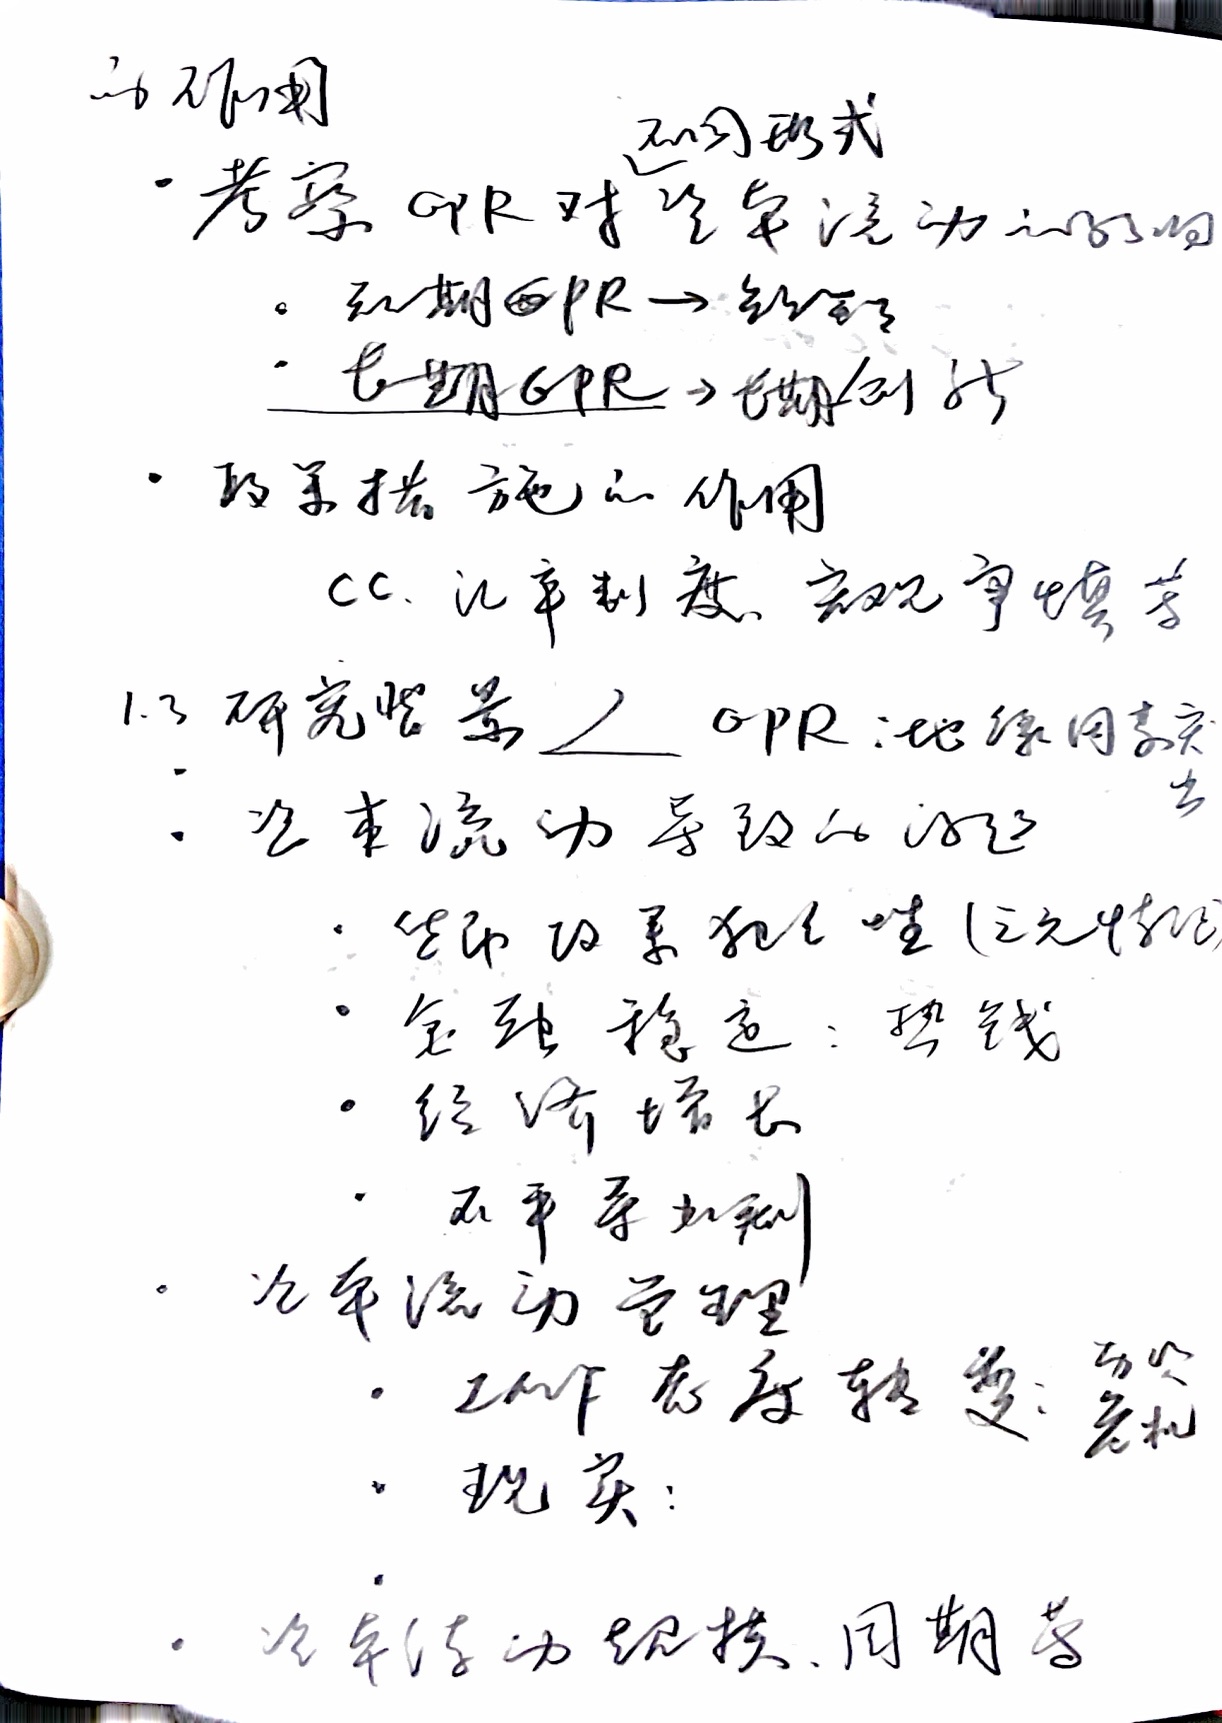 的作用
不同形式
· 考察GPR对资本流动的影响
· 短期GPR→
· 长期GPR→长期创新
· 政策措施的作用
CC、汇率制度、宏观审慎等
1.3 研究背景 GPR:地缘因素突出
· 资本流动导致的问题
· 货币政策独立性(三元悖论)
· 金融稳定:热钱
· 经济增长
· 不平等加剧
· 资本流动管理
· IMF态度转变:
危机
· 现实:
· 资本流动规模、周期等